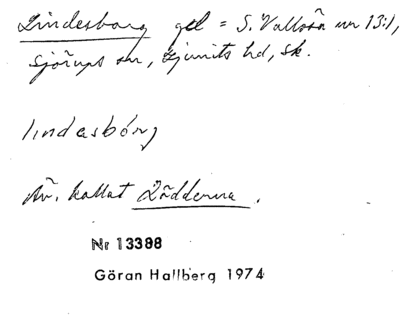 Lindesborg gd = S. Vallösa nr 13:1,
Sjörups sn, Ljunits hd, Sk.
lindasbórg
Äv. kallat Räddorna.
Nr 13398
Göran Hallberg 1974